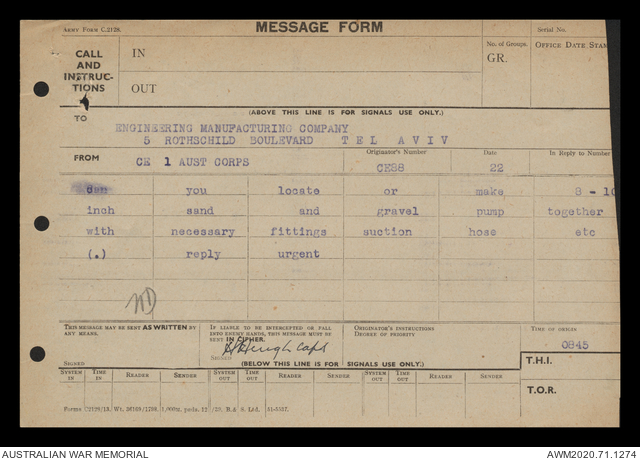 ARMY FORM C.2128.
MESSAGE FORM
Serial No.
CALL AND INSTRUC- TIONS
IN
OUT
No. of Groups.
GR.
OFFICE DATE STAM
(ABOVE THIS LINE IS FOR SIGNALS USE ONLY.)
TO
ENGINEERING MANUFACTURING COMPANY
5 ROTHSCHILD BOULEVARD TEL AVIV
FROM
CE 1 AUST CORPS
Originator's Number
CE88
Date
22
In Reply to Number
can you locate or make 8 - 10
inch sand and gravel pump together
with necessary fittings suction hose etc
(.) reply urgent
THIS MESSAGE MAY BE SENT AS WRITTEN BY
ANY MEANS.
SIGNED
IF LIABLE TO BE INTERCEPTED OR FALL
INTO ENEMY HANDS, THIS MESSAGE MUST BE
SENT IN CIPHER.
SIGNED
Capt
ORIGINATOR'S INSTRUCTIONS
DEGREE OF PRIORITY
TIME OF ORIGIN
0845
(BELOW THIS LINE IS FOR SIGNALS USE ONLY.)
T.H.I.
SYSTEM IN
TIME IN
READER
SENDER
SYSTEM OUT
TIME OUT
READER
SENDER
SYSTEM OUT
TIME OUT
READER
SENDER
T.O.R.
AUSTRALIAN WAR MEMORIAL
AWM2020.71.1274